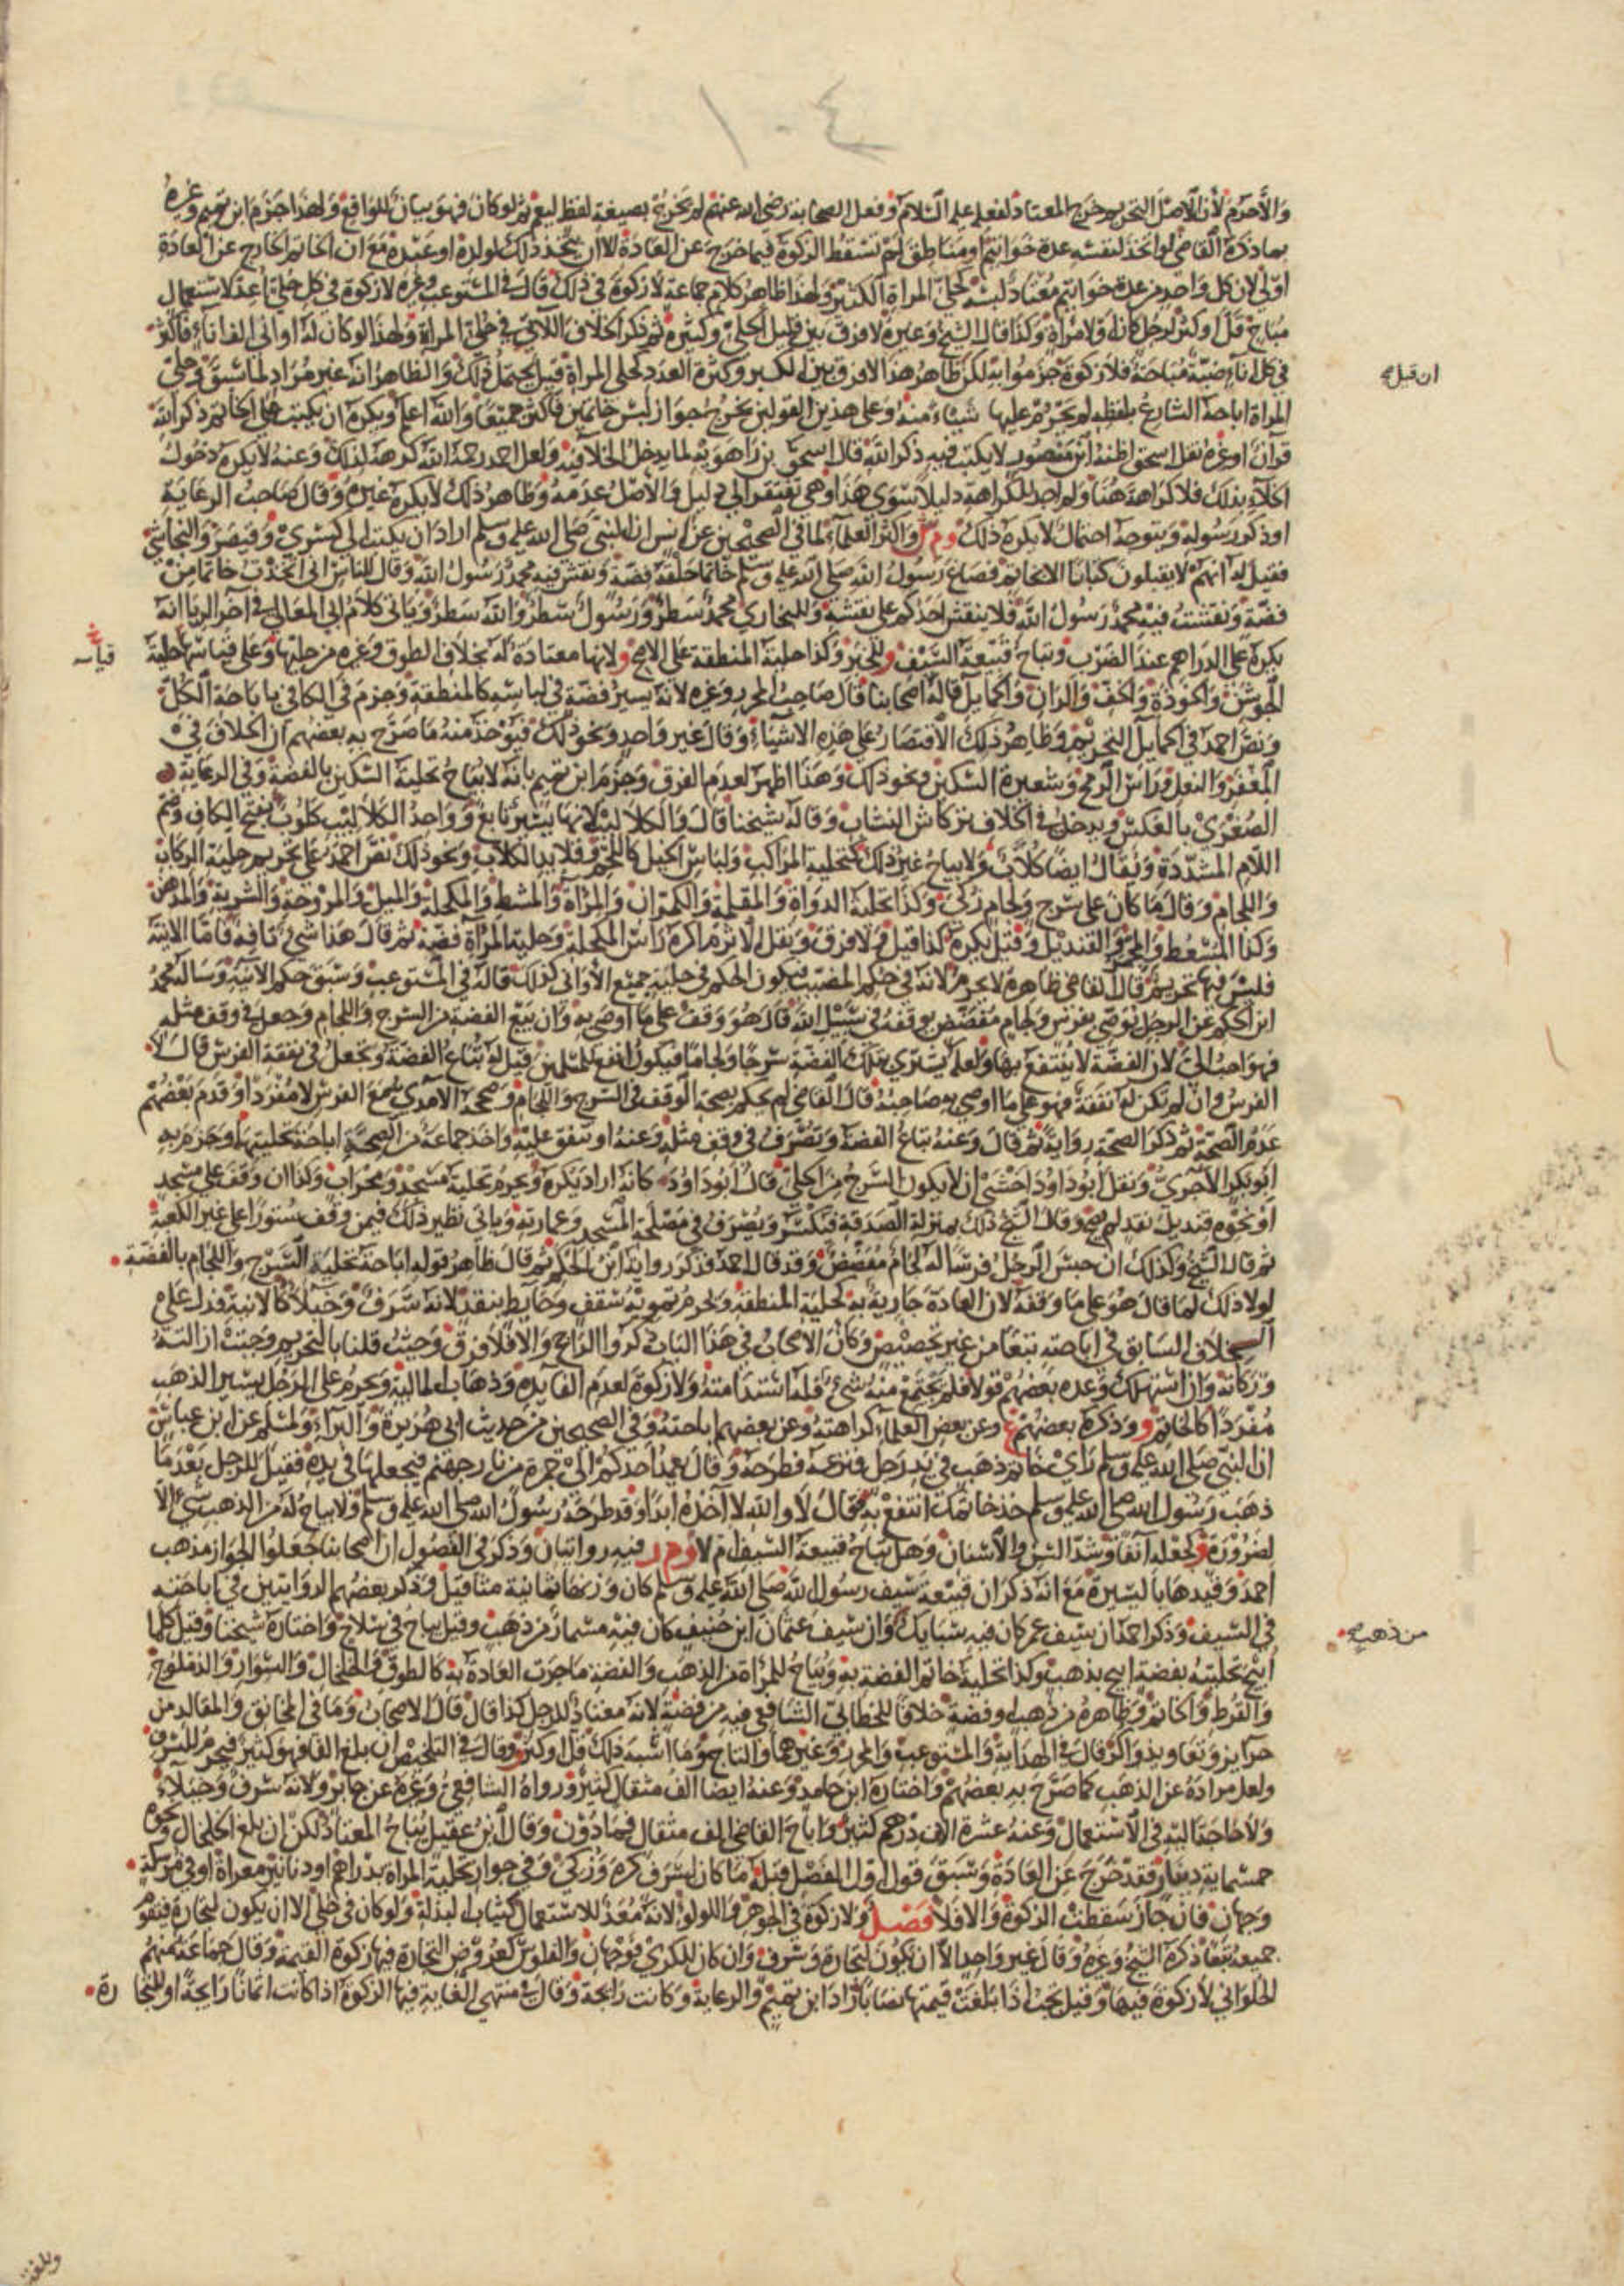 ١٠٤
والأحرم لأن الأصل التحريم خرج المعتاد لفعله عليه السلام وفعل الصحابة رضي الله عنهم لم يخرج بصيغة لفظ ليعم ثم لو كان فهو بيان للواقع ولهذا جزم ابن تميم وغيره
بما ذكره القاضي لو اتخذ لنفسه عدة خواتيم أو مناطق لم تسقط الزكوة فيما خرج عن العادة الا ان يتخذ ذلك لولده او عبده مع ان الخاتم الخارج عن العادة
اولى لان كل واحد من عدة خواتيم معتاد لبسه كحلي المراة الكثير ولهذا ظاهر كلام جماعة لا زكوة في ذلك قال في المستوعب وغيره لا زكوة في كل حلي اعد لاستعمال
مباح قل او كثر لرجل كان او لامراة وكذا قال الشيخ وغيره لا فرق بين قليل الحلي وكثيره ثم ذكر الخلاف الاتي في حلي المراة ولهذا لو كان له اواني الف اناء فاكثر
في كل اناء ضبة مباحة فلا زكوة جزموا به لكن ظاهر هذا لا فرق بين الكبر وكثرة العدد كحلي المراة قيل يحتمل ذلك والظاهر انه غير مراد لما سبق وحلي
ان قيل صح
المراة اباحه الشارع بلفظه لم يحرم عليها شياء منه وعلى هذين القولين يخرج جواز لبس خاتمين فاكثر جميعا والله اعلم ويكره ان يكتب على الخاتم ذكر الله
قرآن او غيره نقل اسحق اظنه ابن منصور لا يكتب فيه ذكر الله قال اسحق بن راهويه لما يدخل الخلاء فيه ولعل احمد رحمه الله كرهه لذلك وعنه لا يكره دخول
الخلاء بذلك فلا كراهة هنا ولم اجد للكراهة دليلا سوى هذا وهي تفتقر الى دليل والاصل عدمه وظاهر ذلك لا يكره غيره وقال صاحب الرعاية
او ذكر رسوله ويتوجه احتمال لا يكره ذلك وم ش واكثر العلماء لما في الصحيحين عن انس ان النبي صلى الله عليه وسلم اراد ان يكتب الى كسرى وقيصر والنجاشي
فقيل له انهم لا يقبلون كتابا الا بخاتم فصاغ رسول الله صلى الله عليه وسلم خاتما حلقه فضة ونقش فيه محمد رسول الله وقال للناس اني اتخذت خاتما من
فضة ونقشت فيه محمد رسول الله فلا ينقش احدكم على نقشه وللبخاري محمد سطر ورسول سطر والله سطر وياتي كلام ابي المعالي في آخر الربا انه
يكره على الدراهم عند الضرب ويباح قبيعة السيف وللخبر وكذا حلية المنطقة على الاصح ولانها معتادة له بخلاف الطوق وغيره من حليها وعلى قياسها حلية
قياسه
الجوشن والخوذة والخف والران والحمايل قاله اصحابنا قال صاحب المحرر وغيره لانه يسير فضة في لباسه كالمنطقة وجزم في الكافي باباحة الكل
ونص احمد في الحمايل التحريم وظاهر ذلك الاقتصار على هذه الاشياء وقال غير واحد ونحو ذلك فيؤخذ منه ما صرح به بعضهم ان الخلاف في
المغفر والنعل وراس الرمح وشعيرة السكين ونحو ذلك وهذا اظهر لعدم الفرق وجزم ابن تميم بانه لا يباح تحلية السكين بالفضة وفي الرعاية
الصغرى بالعكس ويدخل في الخلاف تركاش النشاب وقاله شيخنا قال والكلاليب لانها يسير تابع وواحد الكلاليب كلوب بفتح الكاف وضم
اللام المشددة ويقال ايضا كلاب ولا يباح غير ذلك كتحلية المراكب ولباس الخيل كاللجم وقلايد الكلاب ونحو ذلك نص احمد على تحريم حلية الركاب
واللجام وقال ما كان على سرج ولجام زكي وكذا تحلية الدواة والمقلمة والكمران والمرآة والمشط والمكحلة والميل والمروحة والشربة والمدهن
وكذا المسعط والمجمر والقنديل وقيل يكره كذا قيل ولا فرق ونقل الاثرم اكره راس المكحلة وحلية المرآة فضة ثم قال هذا شيء تافه فاما الانية
فليس فيها تحريم قال القاضي ظاهره لا يحرم لانه في حكم المضبب فيكون الحكم في حلية جميع الاواني كذلك قاله في المستوعب وسبق حكم الآنية وساله محمد
ابن الحكم عن الرجل يوصي بفرس ولجام مفضض يوقفه في سبيل الله قال هو وقف على ما اوصى به وان بيع الفضة من السرج واللجام وجعل في وقف مثله
فهو احب الي لان الفضة لا ينتفع بها ولعله يشتري بتلك الفضة سرجا ولجاما فيكون انفع للمسلمين قيل له تباع الفضة وتجعل في نفقة الفرس قال لا
الفرس وان لم تكن له نفقة فهو على ما اوصى به صاحبه قال القاضي لم يحكم بصحة الوقف في السرج واللجام وصححه الآمدي مع الفرس لا مفردا وقدم بعضهم
عدم الصحة ثم ذكر الصحة رواية ثم قال وعنه تباع الفضة وتصرف في وقف مثله وعنه او تنفق عليه واخذ جماعة من الصحة اباحة تحليتهما وجزم به
ابو بكر الآجري ونقل ابو داود اخشى ان لا يكون السرج من الحلي قال ابو داود كانه اراد يكره ويحرم تحلية مسجد ومحراب وكذا ان وقف على مسجد
او نحوه قنديل نقد لم يصح وقال الشيخ ذلك بمنزلة الصدقة فيكسر ويصرف في مصلحة المسجد وعمارته وياتي نظير ذلك فيمن وقف ستورا على غير الكعبة
ثم قال الشيخ وكذلك ان حبس الرجل فرسا له لجام مفضض وقد قال احمد فذكر رواية ابن الحكم ثم قال ظاهر قوله اباحة تحلية السرج واللجام بالفضة
لولا ذلك لما قال هو على ما وقفه لان العادة جارية به كحلية المنطقة ويحرم تمويه سقف وحايط بنقد لانه سرف وخيلا كالانية فدل على
الخلاف السابق في اباحته تبعا من غير تخصيص وكان الاصحاب في هذا الباب ذكروا الراجح والا فلا فرق وحيث قلنا بالتحريم وجبت ازالته
وزكاته وان استهلك وعده بعضهم قولا فلم يجتمع منه شيء فله استدامته ولا زكوة لعدم الفايدة وذهاب المالية ويحرم على الرجل يسير الذهب
مفردا كالخاتم و وذكره بعضهم ع وعن بعض العلماء كراهته وعن بعضهم اباحته وفي الصحيحين من حديث ابي هريرة والبراء ولمسلم عن ابن عباس
ان النبي صلى الله عليه وسلم راى خاتم ذهب في يد رجل فنزعه فطرحه وقال يعمد احدكم الى جمرة من نار جهنم فيجعلها في يده فقيل للرجل بعد ما
ذهب رسول الله صلى الله عليه وسلم خذ خاتمك انتفع به فقال لا والله لا آخذه ابدا وقد طرحه رسول الله صلى الله عليه وسلم ولا يباح له من الذهب شيء الا
لضرورة و كجعله انفا وشد السن والاسنان وهل يباح قبيعة السيف ام لا وم ر فيه روايتان وذكر في الفصول ان اصحابنا جعلوا الجواز مذهب
احمد وقيدها باليسيرة مع انه ذكر ان قبيعة سيف رسول الله صلى الله عليه وسلم كان وزنها ثمانية مثاقيل وذكر بعضهم الروايتين في اباحته
في السيف وذكر احمد ان سيف عمر كان فيه سبايك وان سيف عثمان ابن حنيف كان فيه مسمار من ذهب وقيل يباح في سلاح واختاره شيخنا وقيل كلما
من ذهب صح
ابيح تحليته بفضة ابيح بذهب وكذا تحلية خاتم الفضة به ويباح للمراة من الذهب والفضة ما جرت العادة به كالطوق والخلخال والسوار والدملوج
والقرط والخاتم وظاهره من ذهب او فضة خلافا للخطابي الشافعي فيه من فضة لانه معتاد للرجل كذا قال قال الاصحاب وما في المخانق والمقالد من
حرايز وتعاويذ واكر قال في الهداية والمستوعب والمحرر وغيرهما والتاج وما اشبه ذلك قل او كثر وقال في التلخيص ان بلغ الفا فهو كثير فيحرم للسرف
ولعل مراده عن الذهب كما صرح به بعضهم واختاره ابن حامد وعنه ايضا الف مثقال كثير ورواه الشافعي وغيره عن جابر ولانه سرف وخيلاء
ولا حاجة اليه في الاستعمال وعنه عشرة الاف درهم كثير واباح القاضي الف مثقال فما دون وقال ابن عقيل يباح المعتاد لكن ان بلغ الخلخال ونحوه
خمسماية دينار فقد خرج عن العادة وسبق قوله اول الفصل قبله ما كان لسرف كره وزكي وفي جواز تحلية المراة بدراهم او دنانير معراة او في مرسلة
وجهان فان جاز سقطت الزكوة والا فلا فصل ولا زكوة في الجوهر واللولو لانه معد للاستعمال كثياب البذلة ولو كان في حلي الا ان يكون لتجارة فيقوم
جميعه تبعا ذكره الشيخ وغيره وقال غير واحد الا ان يكون لتجارة وسرف وان كان للكري فوجهان والفلوس كعروض التجارة فيها زكوة القيمة وقال جماعة منهم
الحلواني لا زكوة فيها وقيل تجب اذا بلغت قيمتها نصابا زاد ابن تميم والرعاية وكانت رايجة وقال في منتهى الغاية فيها الزكوة اذا كانت اثمانا رايجة او للتجارة
وبلغت